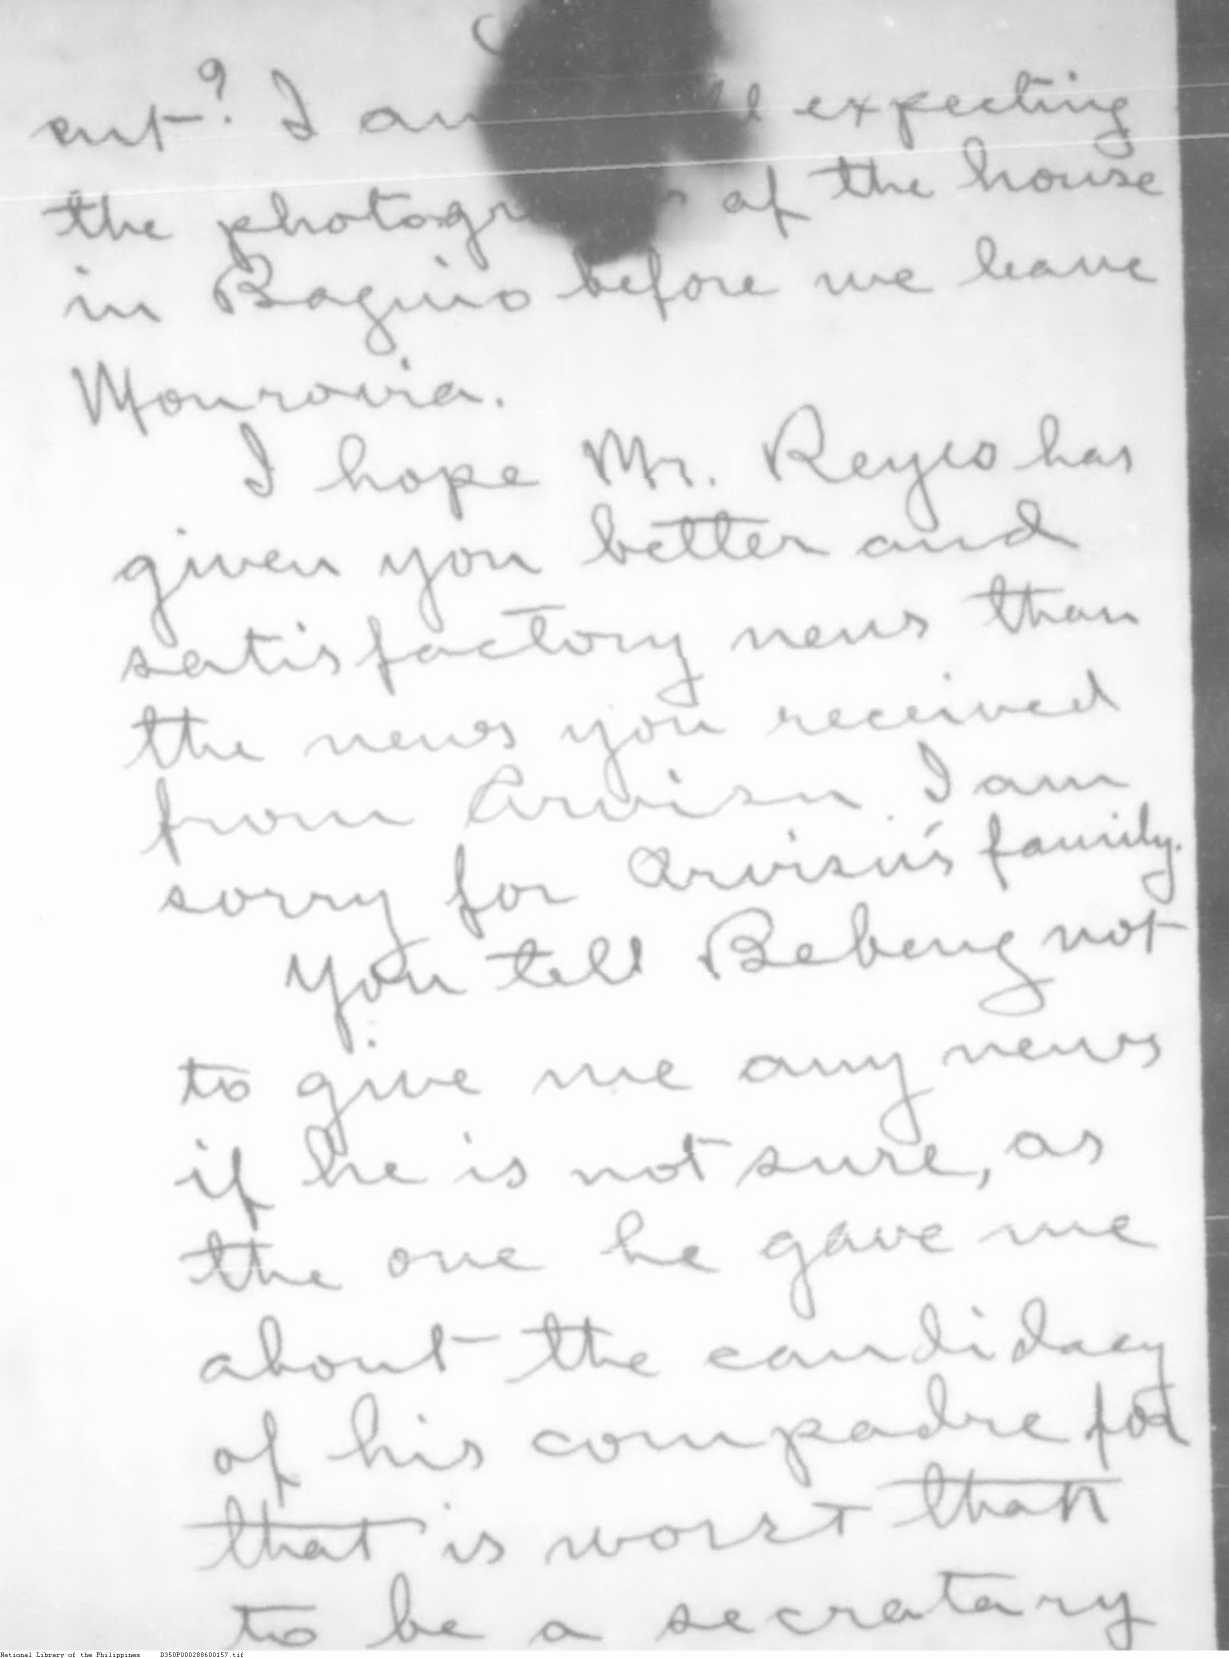 ent? I am expecting
the of the house
in Baguio before we leave
Monrovia.
I hope Mr. Reyes has
given you better and
satisfactory news than
the news you received
from Arvisu. I am
sorry for Arvisu's family.
You tell Bebeng not
to give me any news
if he is not sure, as
the one he gave me
about the candidacy
of his compadre for
that is worst than
to be a secratary
National Library of the Philippines D350P000288600157.tif